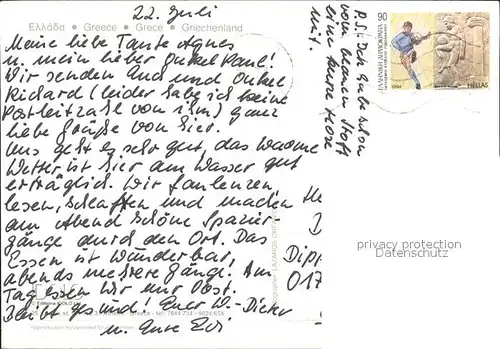 22. Juli
Ελλάδα • Greece • Grece • Griechenland
Meine liebe Tante Agnes
u. mein lieber Onkel Paul!
Wir senden Auch und Onkel
Richard (leider habe ich keine
Postleitzahl von ihm) ganz
liebe Grüße von hier.
Uns geht es sehr gut, das warme
Wetter ist hier am Wasser gut
erträglich. Wir faulenzen,
lesen, schlafen und machen
am Abend schöne Spazier
gänge durch den Ort. Das
Essen ist wunderbar,
abends mehrere Gänge! Am
Tag essen wir nur Obst.
Bleibt gesund! Euer W.-Dieter
u. Eure Edi
P.S. Ich habe schon
vom blauen Stoff
eine kurze Hose
mit.
90
ΕΛΛΗΝΙΚΗ ΔΗΜΟΚΡΑΤΙΑ
1994
HELLAS
privacy protection
Dipp
017